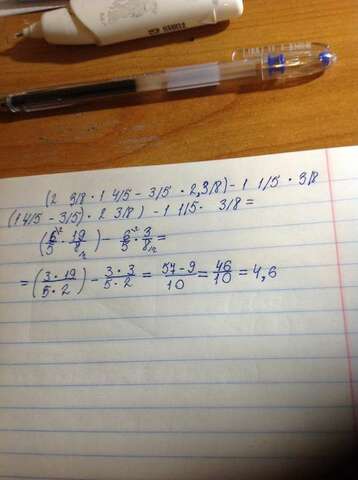 (2 3/8 · 1 4/5 - 3/5 · 2,3/8) - 1 1/5 · 3/8
(1 4/5 - 3/5) · 2 3/8) - 1 1/5 · 3/8 =
(6/5 · 19/8) - 6/5 · 3/8 =
= (3 · 19 / 5 · 2) - 3 · 3 / 5 · 2 = 57 - 9 / 10 = 46 / 10 = 4,6